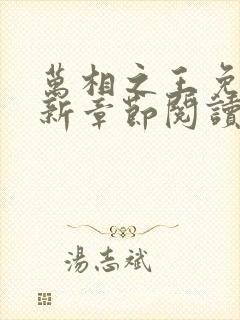 萬相之王免
新章節閱讀
湯志斌